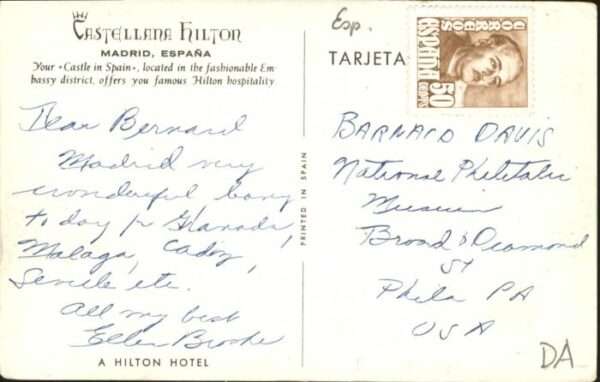 CASTELLANA HILTON
MADRID, ESPAÑA
Your «Castle in Spain», located in the fashionable Em-
bassy district, offers you famous Hilton hospitality
Dear Bernard
Madrid very
wonderful
to day for Granada,
Malaga, Cadiz,
Seville etc.
All my best
Ellen
A HILTON HOTEL
PRINTED IN SPAIN
Esp.
TARJETA
CORREOS
ESPAÑA
50
CENTS
BARNARD DAVIS
National Philatelic
Museum
Broad & Diamond
St
Phila PA
USA
DA